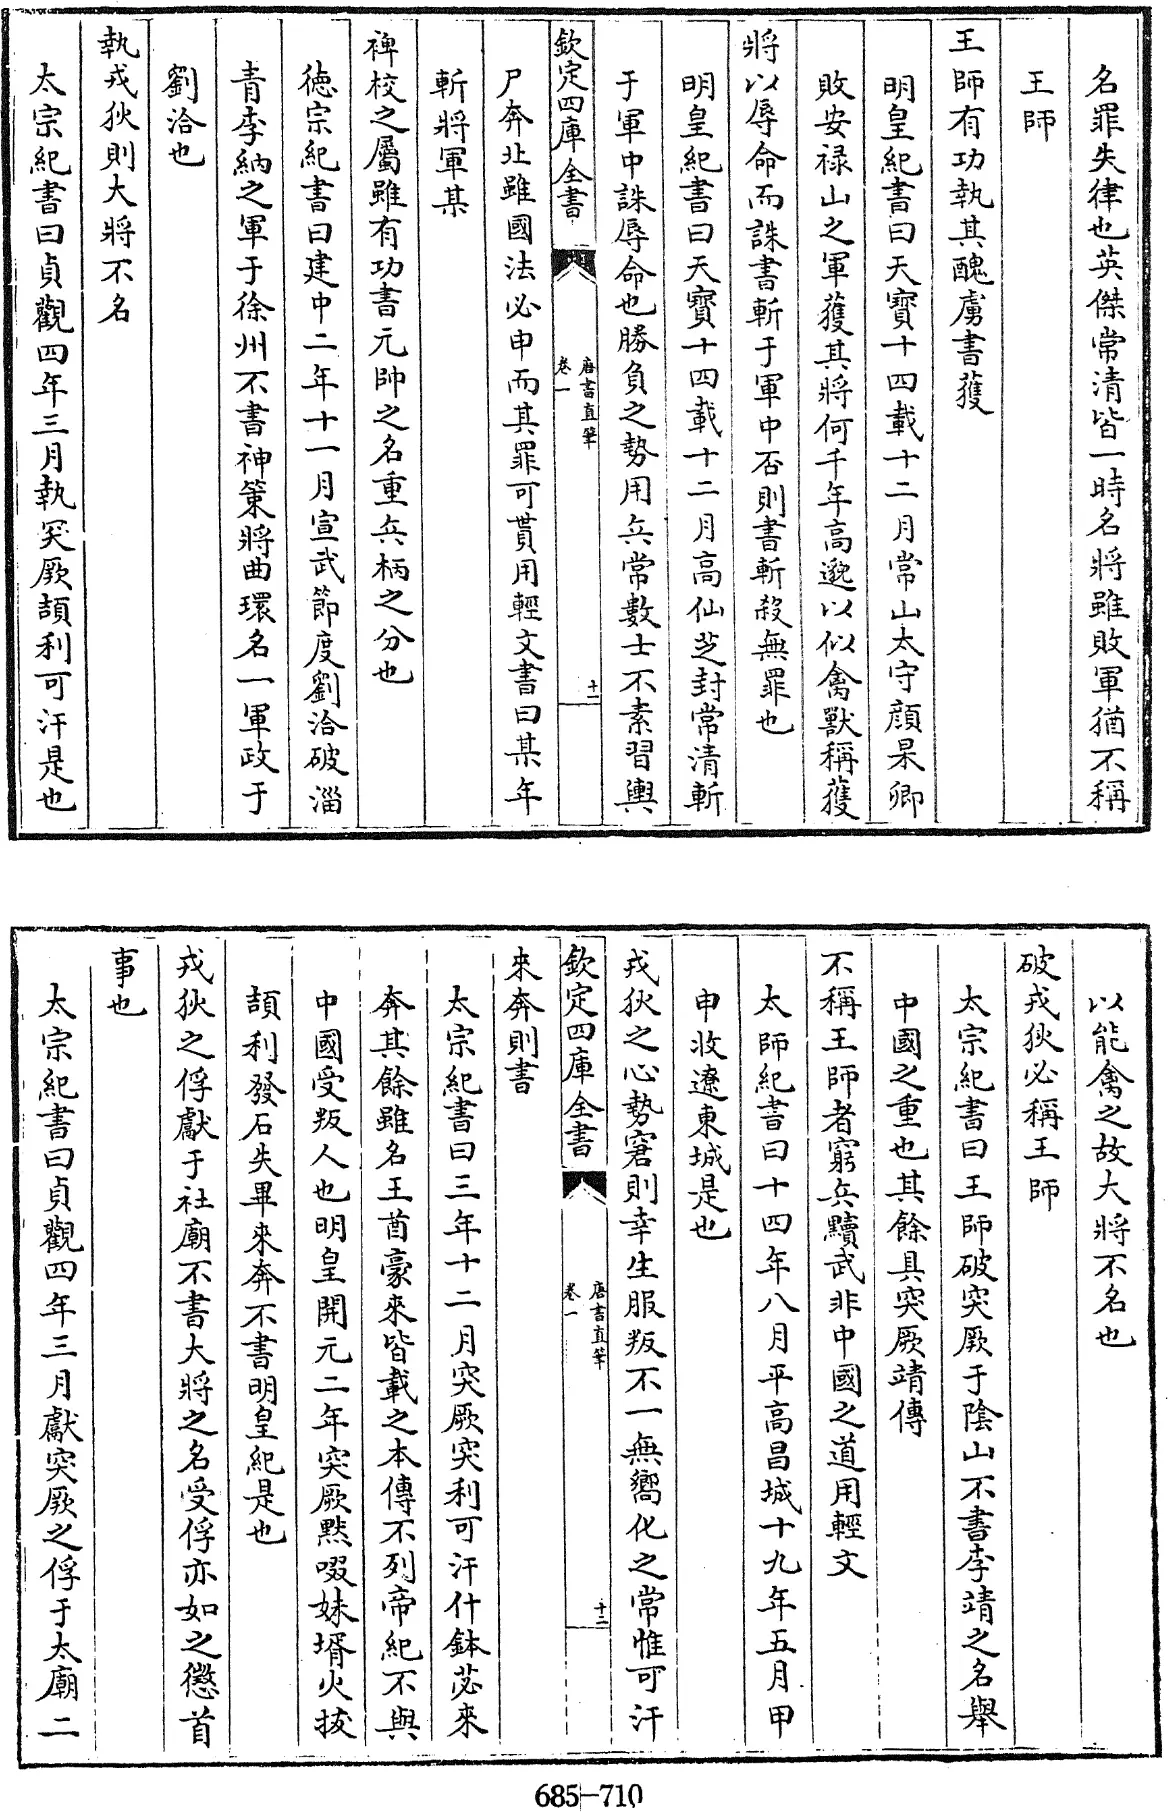 名罪失律也英傑常清皆一時名將雖敗軍猶不稱
王師
王師有功執其醜虜書獲
明皇紀書曰天寳十四載十二月常山太守顔杲卿
敗安禄山之軍獲其將何千年高邈以似禽獸稱獲
將以辱命而誅書斬于軍中否則書斬殺無罪也
明皇紀書曰天寳十四載十二月高仙芝封常清斬
于軍中誅辱命也勝負之勢用兵常數士不素習輿
欽定四庫全書
唐書直筆
卷一
十一
尸奔北雖國法必申而其罪可貰用輕文書曰某年
斬將軍某
裨校之屬雖有功書元帥之名重兵柄之分也
德宗紀書曰建中二年十一月宣武節度劉洽破淄
青李納之軍于徐州不書神策將曲環名一軍政于
劉洽也
執戎狄則大將不名
太宗紀書曰貞觀四年三月執突厥頡利可汗是也
以能禽之故大將不名也
破戎狄必稱王師
太宗紀書曰王師破突厥于陰山不書李靖之名舉
中國之重也其餘具突厥靖傳
不稱王師者窮兵黷武非中國之道用輕文
太師紀書曰十四年八月平高昌城十九年五月甲
申收遼東城是也
戎狄之心勢窘則幸生服叛不一無嚮化之常惟可汗
欽定四庫全書
唐書直筆
卷一
十二
來奔則書
太宗紀書曰三年十二月突厥突利可汗什鉢苾來
奔其餘雖名王酋豪來皆載之本傳不列帝紀不與
中國受叛人也明皇開元二年突厥黙啜妹壻火拔
頡利發石失畢來奔不書明皇紀是也
戎狄之俘獻于社廟不書大將之名受俘亦如之懲首
事也
太宗紀書曰貞觀四年三月獻突厥之俘于太廟二
685-710